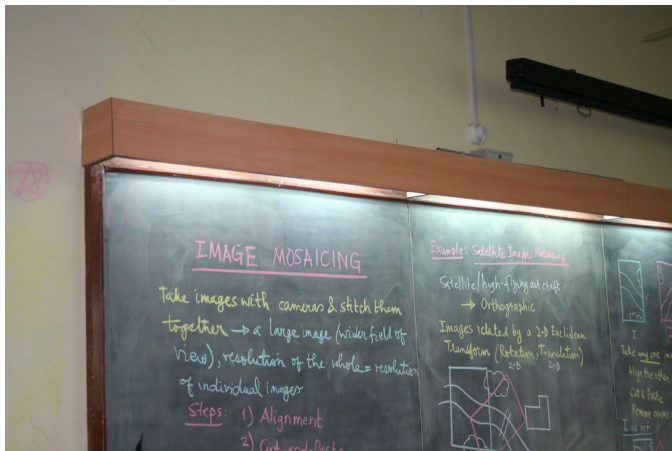 IMAGE MOSAICING
Take images with cameras & stitch them
together → a large image (wider field of
view), resolution of the whole = resolution
of individual images
Steps: 1) Alignment
2) Cut-and-Paste
Example: Satellite Image Mosaicing
Satellite/high-flying aircraft
→ Orthographic
Images related by a 2-D Euclidean
Transform (Rotation, Translation)
2-D 2-D
I
Take any one
Align the other
Cut & Paste
Remove